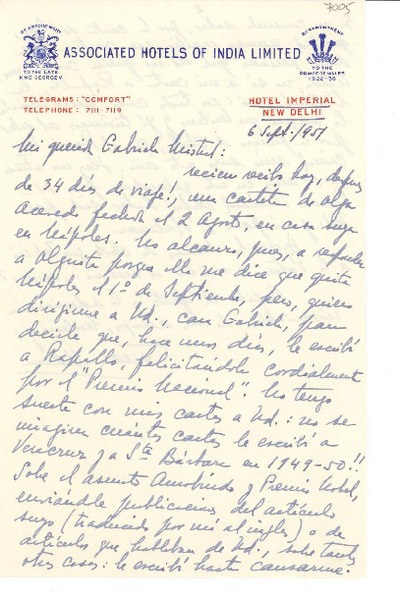 7005
BY APPOINTMENT
BY APPOINTMENT
ASSOCIATED HOTELS OF INDIA LIMITED
TO THE LATE
KING GEORGE V.
TO THE
PRINCE OF WALES
1922-36
TELEGRAMS: "COMFORT"
TELEPHONE: 7111-7119
HOTEL IMPERIAL
NEW DELHI
6 Sept./951
Mi querida Gabriela Mistral:
recien recibo hoy, despues
de 34 días de viaje!, una cartita de Olga
Acevedo fechada el 2 Agosto, en casa suya
en Nápoles. No alcanzo, pues, a responder
a Olguita porque Ella me dice que quita
Nápoles el 1º de Septiembre, pero, quiero
dirigirme a Ud., cara Gabriela, para
decirle que, hace unos días, le escribí
a Rapallo, felicitándole cordialmente
por el "Premio Nacional". No tengo
suerte con mis cartas a Ud.: no se
imagina cuántas cartas le escribí a
Veracruz y a Sta Bárbara en 1949-50!!
Sobre el asunto Aurobindo y Premio Nobel,
enviándole publicaciones del artículo
suyo (traducido por mí al inglés) o de
artículos que hablaban de Ud., sobre tantas
otras cosas: le escribí hasta cansarme.